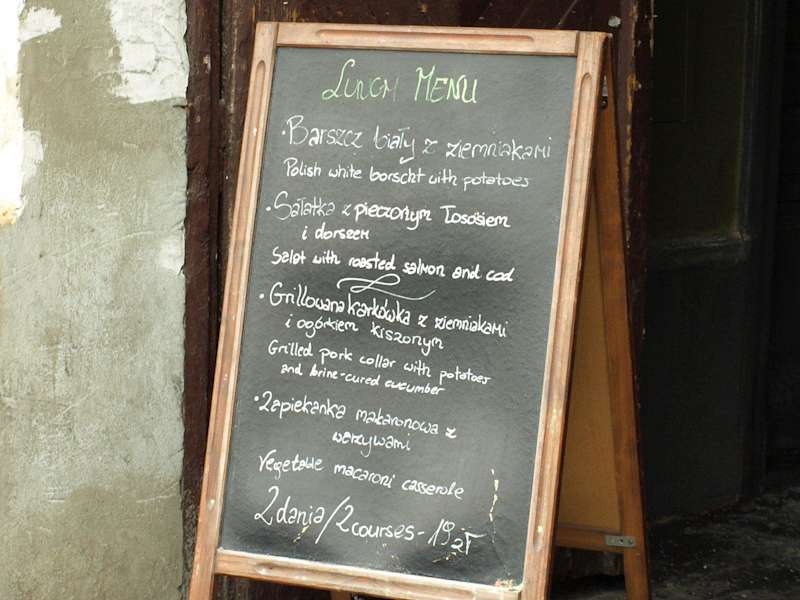 LUNCH MENU
• Barszcz biały z ziemniakami
Polish white borscht with potatoes
• Sałatka z pieczonym łososiem
i dorszem
Salat with roasted salmon and cod
• Grillowana karkówka z ziemniakami
i ogórkiem kiszonym
Grilled pork collar with potatoes
and brine-cured cucumber
• Zapiekanka makaronowa z
warzywami
Vegetable macaroni casserole
2 dania/2 courses - 19 zł